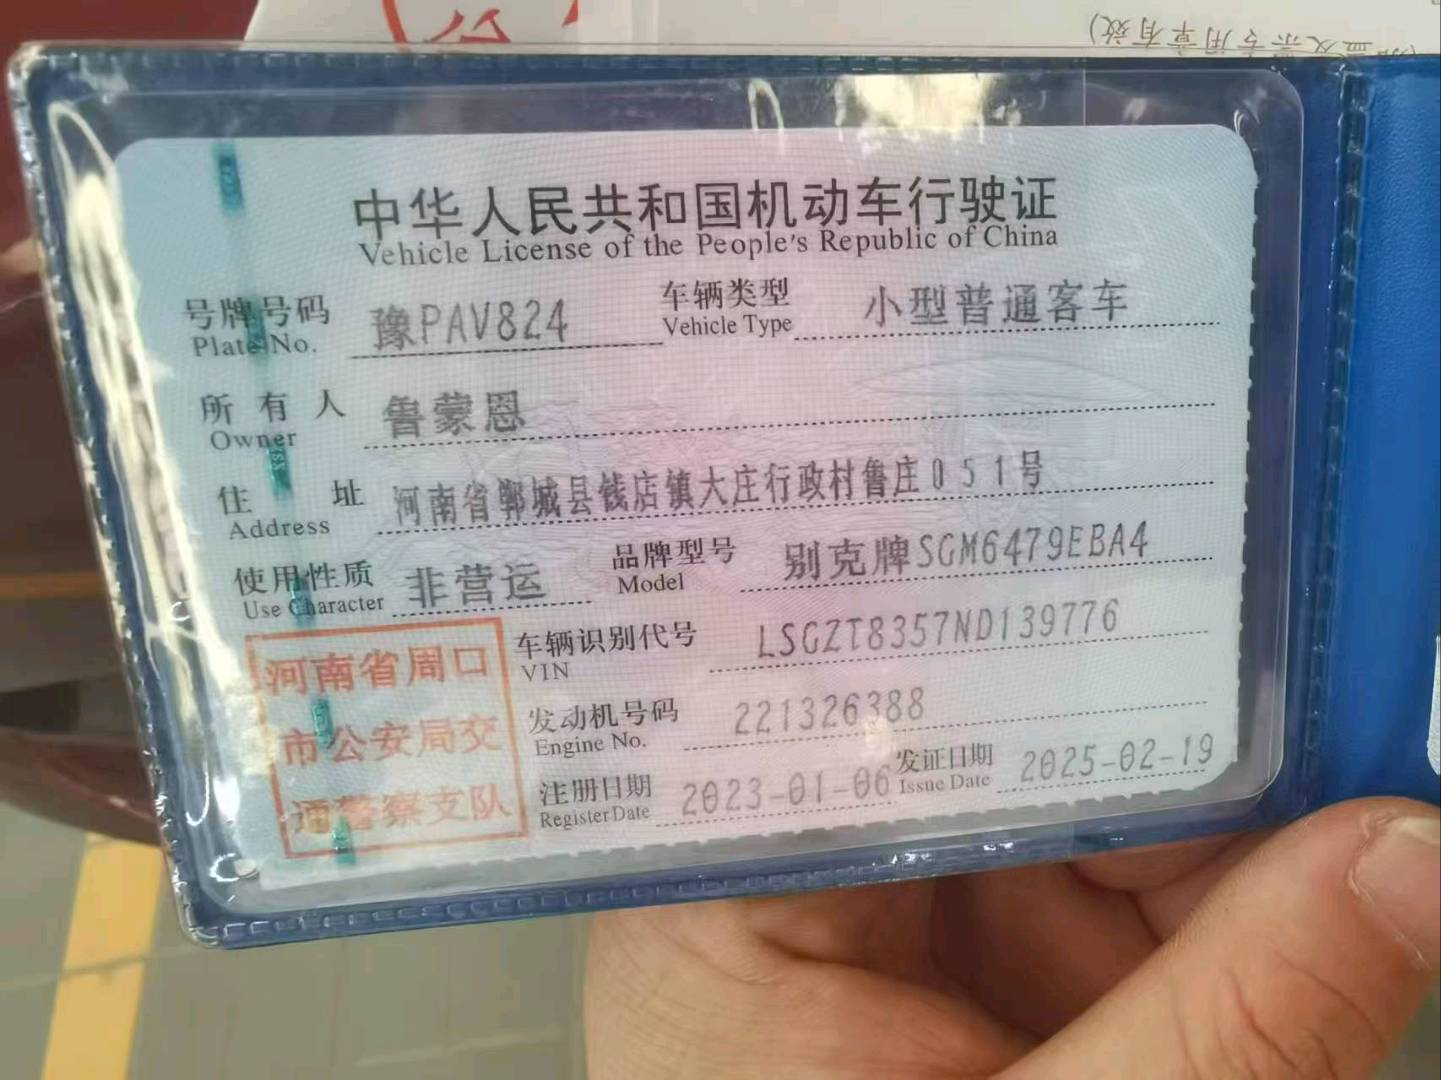 (加盖发票专用章有效)
中华人民共和国机动车行驶证
Vehicle License of the People's Republic of China
号牌号码 豫PAV824 车辆类型 小型普通客车
Plate No. Vehicle Type
所有人 鲁蒙恩
Owner
住址 河南省郸城县钱店镇大庄行政村鲁庄051号
Address
使用性质 非营运 品牌型号 别克牌SGM6479EBA4
Use Character Model
车辆识别代号 LSGZT8357ND139776
VIN
发动机号码 221326388
Engine No.
注册日期 2023-01-06 发证日期 2025-02-19
Register Date Issue Date
河南省周口
市公安局交
通警察支队